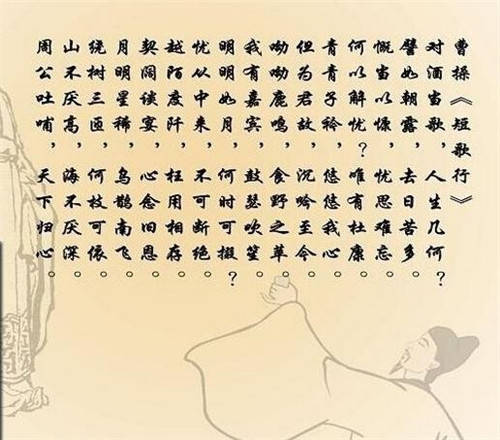 曹操《短歌行》
对酒当歌，人生几何？
譬如朝露，去日苦多。
慨当以慷，忧思难忘。
何以解忧？唯有杜康。
青青子衿，悠悠我心。
但为君故，沉吟至今。
呦呦鹿鸣，食野之苹。
我有嘉宾，鼓瑟吹笙。
明明如月，何时可掇？
忧从中来，不可断绝。
越陌度阡，枉用相存。
契阔谈宴，心念旧恩。
月明星稀，乌鹊南飞。
绕树三匝，何枝可依。
山不厌高，海不厌深。
周公吐哺，天下归心。